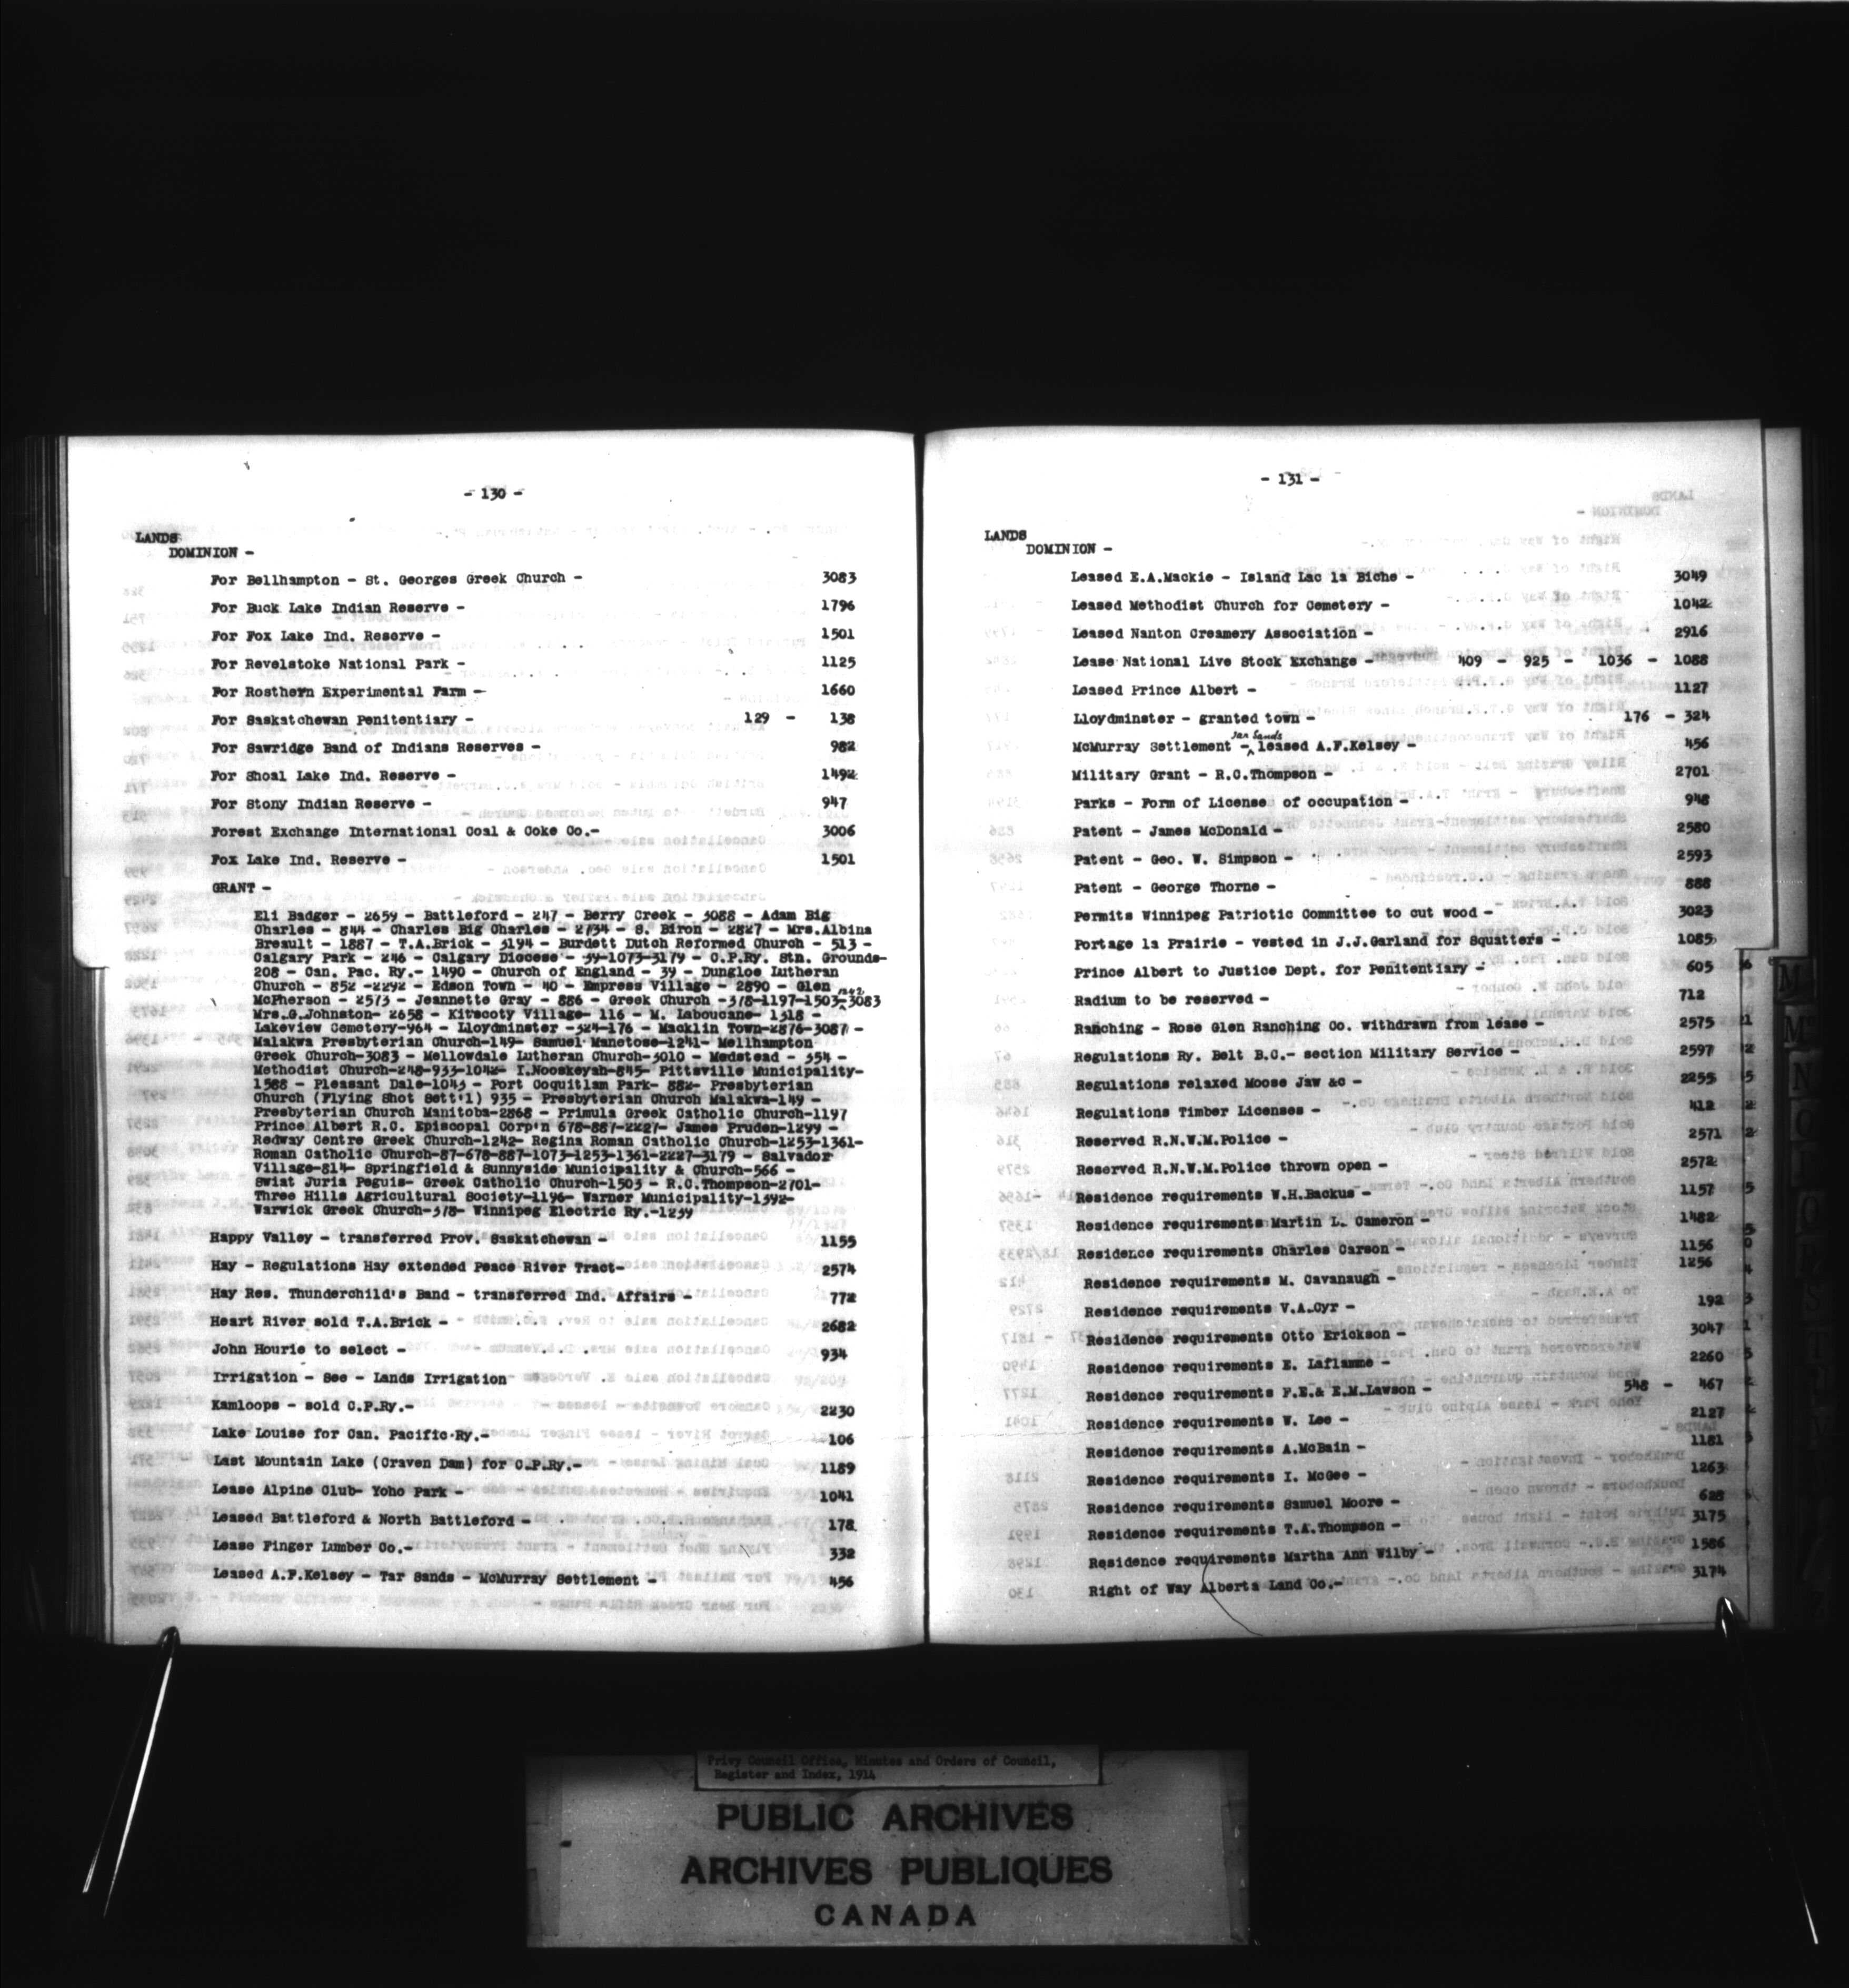 - 130 -
LANDS
DOMINION -
For Bellhampton - St. Georges Greek Church - 3083
For Buck Lake Indian Reserve - 1796
For Fox Lake Ind. Reserve - 1501
For Revelstoke National Park - 1125
For Rosthern Experimental Farm - 1660
For Saskatchewan Penitentiary - 129 - 138
For Sawridge Band of Indians Reserves - 982
For Shoal Lake Ind. Reserve - 1492
For Stony Indian Reserve - 947
Forest Exchange International Coal & Coke Co.- 3006
Fox Lake Ind. Reserve - 1501
GRANT -
Eli Badger - 2659 - Battleford - 247 - Berry Creek - 3088 - Adam Big
Charles - 844 - Charles Big Charles - 2734 - S. Biron - 2827 - Mrs.Albina
Breault - 1887 - T.A.Brick - 3194 - Burdett Dutch Reformed Church - 513 -
Calgary Park - 246 - Calgary Diocese - 39-1073-3179 - C.P.Ry. Stn. Grounds-
208 - Can. Pac. Ry.- 1490 - Church of England - 39 - Dungloe Lutheran
Church - 852 -2292 - Edson Town - 40 - Empress Village - 2890 - Glen
McPherson - 2573 - Jeannette Gray - 886 - Greek Church -378-1197-1503-3083
Mrs.G.Johnston- 2658 - Kitscoty Village- 116 - M. Laboucane- 1318 -
Lakeview Cemetery-964 - Lloydminster -324-176 - Macklin Town-2876-3087 -
Malakwa Presbyterian Church-149- Samuel Manetose-1241- Mellhampton
Greek Church-3083 - Mellowdale Lutheran Church-3010 - Medstead - 354 -
Methodist Church-248-933-1042- I.Nooskeyah-845- Pittsville Municipality-
1588 - Pleasant Dale-1043 - Port Coquitlam Park- 882- Presbyterian
Church (Flying Shot Sett'l) 935 - Presbyterian Church Malakwa-149 -
Presbyterian Church Manitoba-2868 - Primula Greek Catholic Church-1197
Prince Albert R.C. Episcopal Corp'n 678-887-2227- James Pruden-1299 -
Redway Centre Greek Church-1242- Regina Roman Catholic Church-1253-1361-
Roman Catholic Church-87-678-887-1073-1253-1361-2227-3179 - Salvador
Village-814- Springfield & Sunnyside Municipality & Church-566 -
Swiat Juria Peguis- Greek Catholic Church-1503 - R.C.Thompson-2701-
Three Hills Agricultural Society-1196- Warner Municipality-1392-
Warwick Greek Church-378- Winnipeg Electric Ry.-1239
Happy Valley - transferred Prov. Saskatchewan - 1155
Hay - Regulations Hay extended Peace River Tract- 2574
Hay Res. Thunderchild's Band - transferred Ind. Affairs - 772
Heart River sold T.A.Brick - 2682
John Hourie to select - 934
Irrigation - See - Lands Irrigation
Kamloops - sold C.P.Ry.- 2230
Lake Louise for Can. Pacific Ry.- 106
Last Mountain Lake (Craven Dam) for C.P.Ry.- 1189
Lease Alpine Club- Yoho Park - 1041
Leased Battleford & North Battleford - 178
Lease Finger Lumber Co.- 332
Leased A.F.Kelsey - Tar Sands - McMurray Settlement - 456
- 131 -
LANDS
DOMINION -
Leased E.A.Mackie - Island Lac la Biche - 3049
Leased Methodist Church for Cemetery - 1042
Leased Nanton Creamery Association - 2916
Lease National Live Stock Exchange - 409 - 925 - 1036 - 1088
Leased Prince Albert - 1127
Lloydminster - granted town - 176 - 324
Tar Sands
McMurray Settlement - leased A.F.Kelsey - 456
Military Grant - R.C.Thompson - 2701
Parks - Form of License of occupation - 948
Patent - James McDonald - 2580
Patent - Geo. W. Simpson - 2593
Patent - George Thorne - 888
Permits Winnipeg Patriotic Committee to cut wood - 3023
Portage la Prairie - vested in J.J.Garland for Squatters - 1085
Prince Albert to Justice Dept. for Penitentiary - 605
Radium to be reserved - 712
Ranching - Rose Glen Ranching Co. withdrawn from lease - 2575
Regulations Ry. Belt B.C.- section Military Service - 2597
Regulations relaxed Moose Jaw &c - 2255
Regulations Timber Licenses - 412
Reserved R.N.W.M.Police - 2571
Reserved R.N.W.M.Police thrown open - 2572
Residence requirements W.H.Backus - 1157
Residence requirements Martin L. Cameron - 1482
Residence requirements Charles Carson - 1156
Residence requirements M. Cavanaugh - 1256
Residence requirements V.A.Cyr - 192
Residence requirements Otto Erickson - 3047
Residence requirements E. Laflamme - 2260
Residence requirements F.E.& E.M.Lawson - 548 - 467
Residence requirements W. Lee - 2127
Residence requirements A.McBain - 1181
Residence requirements I. McGee - 1263
Residence requirements Samuel Moore - 628
Residence requirements T.A.Thompson - 3175
Residence requirements Martha Ann Wilby - 1586
Right of Way Alberta Land Co.- 3174
Privy Council Office, Minutes and Orders of Council,
Register and Index, 1914
PUBLIC ARCHIVES
ARCHIVES PUBLIQUES
CANADA